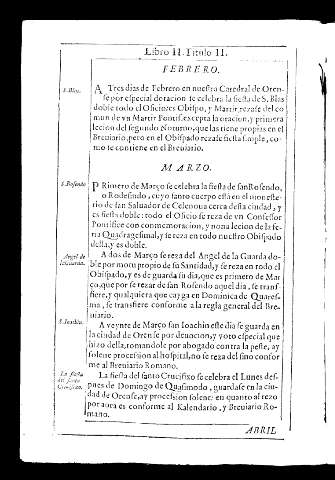 Libro II. Titulo II.
FEBRERO.
S. Blas.
A Tres dias de Febrero en nuestra Catedral de Oren-
se por especial dotacion se celebra la fiesta de S. Blas
doble todo el Oficio es Obispo, y Martir, rezase del co
mun de vn Martir Pontifi. excepta la oracion, y primera
lecion del segundo Noturno, que las tiene propias en el
Breuiario, pero en el Obispado rezase simple, co-
mo se contiene en el Breuiario.
MARZO.
S. Rosendo
PRimero de Março se celebra la fiesta de san Rosendo,
o Rodesindo, cuyo santo cuerpo està en el moneste-
rio de san Saluador de Celenoua cerca desta ciudad, y
es fiesta doble: todo el Oficio se reza de vn Confessor
Pontifice con comemoracion, y nona lecion de la fe-
ria Quadragesimal, y se reza en todo nuestro Obispado
desta, y es doble.
Angel de
la Guarda.
A dos de Março se reza del Angel de la Guarda do-
ble por motu propio de su Santidad, y se reza en todo el
Obispado, y es de guarda su dia, que es primero de Mar
ço, que por se rezar de san Rosendo aquel dia, se trans-
fiere, y qualquiera que cayga en Dominica de Quares-
ma, se transfiere conforme a la regla general del Bre-
uiario.
S. Ioachin.
A veynte de Março san Ioachin este dia se guarda en
la ciudad de Orense por deuocion, y voto especial que
hizo della, tomandole por abogado contra la peste, ay
solene procession al hospital, no se reza del sino confor
me al Breuiario Romano.
La fiesta
del santo
Crucifixo.
La fiesta del santo Crucifixo se celebra el Lunes des-
pues de Domingo de Quasimodo, guardase en la ciu-
dad de Orense, ay procession solene: en quanto al rezo
por aora es conforme al Kalendario, y Breuiario Ro-
mano.
ABRIL